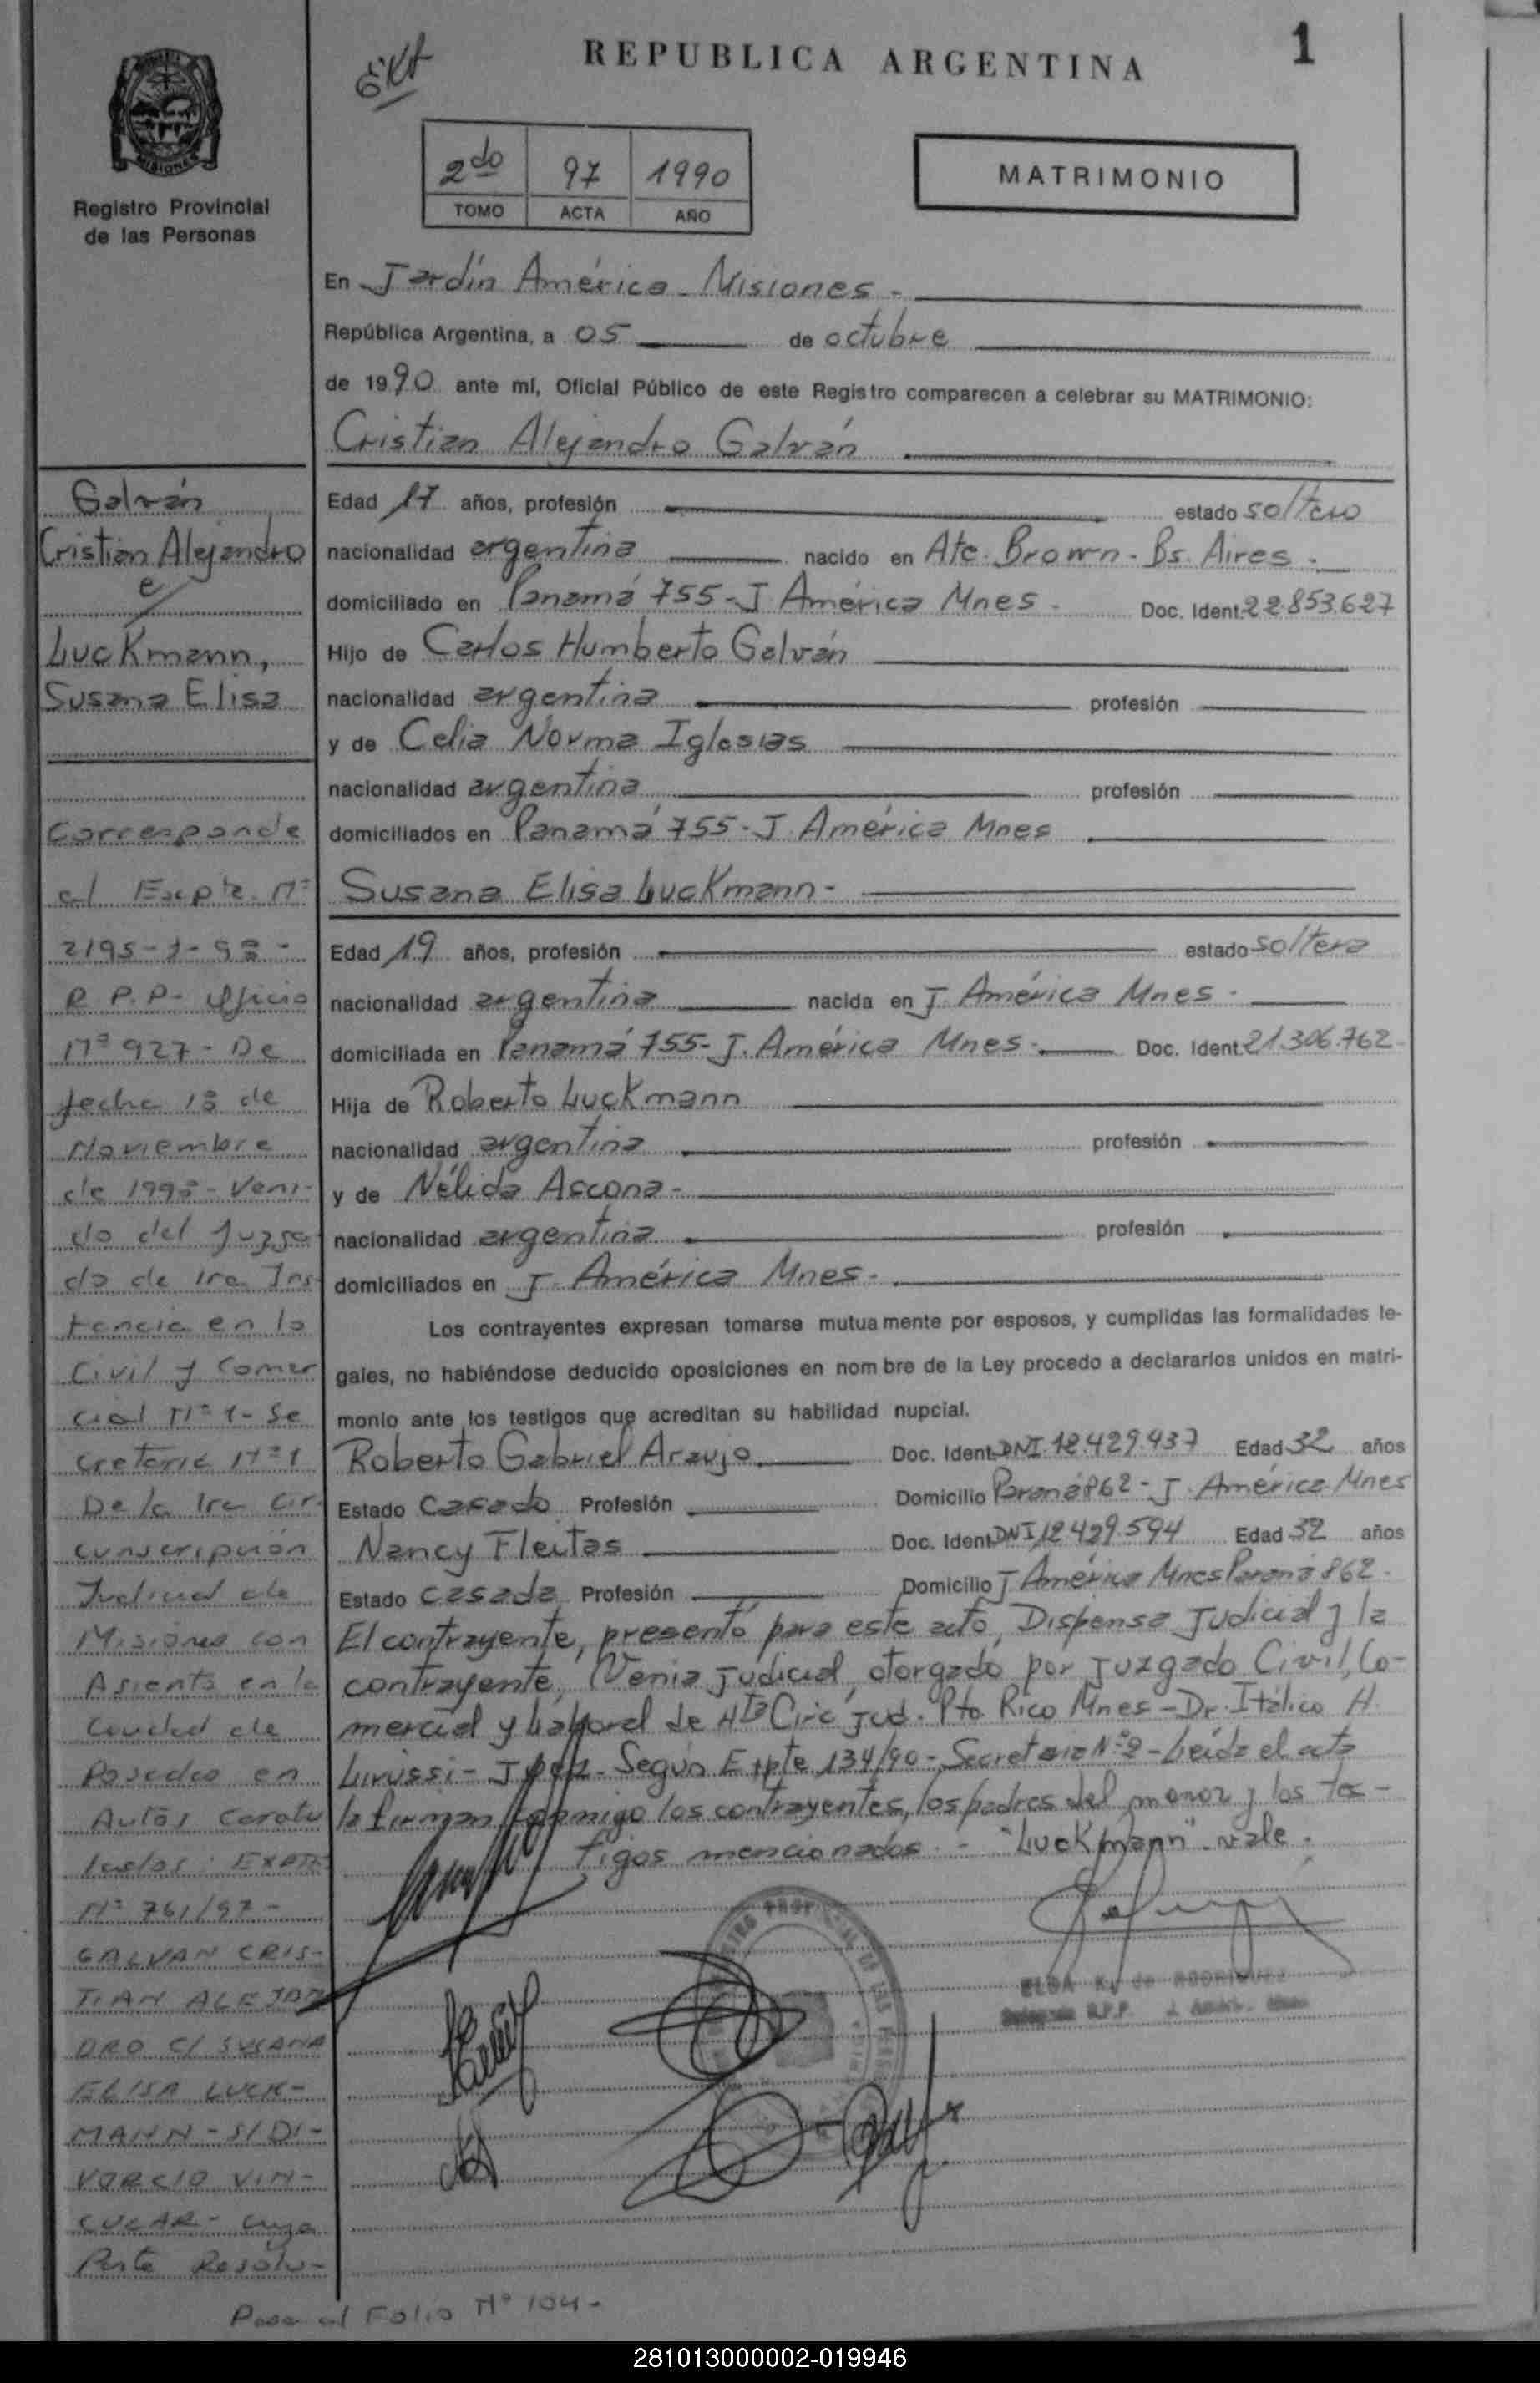 REPUBLICA ARGENTINA
1
MISIONES
Registro Provincial
de las Personas
2do 97 1990
TOMO ACTA AÑO
MATRIMONIO
En Jardín América - Misiones -
República Argentina, a 05 de octubre
de 1990 ante mí, Oficial Público de este Registro comparecen a celebrar su MATRIMONIO:
Cristian Alejandro Galván
Edad 17 años, profesión estado soltero
nacionalidad argentina nacido en Ate. Brown - Bs. Aires -
domiciliado en Panamá 755 - J. América Mnes - Doc. Ident. 22.853.627
Hijo de Carlos Humberto Galván
nacionalidad argentina profesión
y de Celia Norma Iglesias
nacionalidad argentina profesión
domiciliados en Panamá 755 - J. América Mnes
Susana Elisa Luckmann -
Edad 19 años, profesión estado soltera
nacionalidad argentina nacida en J. América Mnes -
domiciliada en Panamá 755 - J. América Mnes - Doc. Ident. 21.306.762
Hija de Roberto Luckmann
nacionalidad argentina profesión
y de Nélida Ascona -
nacionalidad argentina profesión
domiciliados en J. América Mnes -
Los contrayentes expresan tomarse mutuamente por esposos, y cumplidas las formalidades le-
gales, no habiéndose deducido oposiciones en nombre de la Ley procedo a declararlos unidos en matri-
monio ante los testigos que acreditan su habilidad nupcial.
Roberto Gabriel Araujo Doc. Ident. DNI 12.429.437 Edad 32 años
Estado Casado Profesión Domicilio Paraná 862 - J. América Mnes
Nancy Fleitas Doc. Ident. DNI 12.429.594 Edad 32 años
Estado casada Profesión Domicilio J América Mnes Paraná 862 -
El contrayente, presentó para este acto, Dispensa Judicial y la
contrayente, Venia Judicial, otorgado por Juzgado Civil, Co-
mercial y Laboral de Circ. Jud. Pto. Rico Mnes - Dr. Itálico H.
- Juez - Según Expte 134/90 - Secretaria Nº 2 - Leída el acta
la firman conmigo los contrayentes, los padres del menor y los tes-
tigos mencionados. - "Luckmann" vale.
ELDA de RODRIGUEZ
Delegada R.P.P.
Galván
Cristian Alejandro
e/
Luckmann,
Susana Elisa
Corresponde
al Expte. Nº
R P.P - Oficio
Nº 927 - De
fecha 13 de
Noviembre
de 1998 - Veni-
do del Juzga
do de 1ra Ins
tancia en lo
Civil y Comer
cial Nº 1 - Se
cretaria Nº 1
De la 1ra Cir
cunscripción
Judicial de
Misiones con
Asiento en la
Ciudad de
Posadas en
Autos Caratu
lados: EXPTE
Nº 761/97 -
GALVAN CRIS-
TIAN ALEJAN
DRO C/ SUSANA
ELISA LUCK-
MANN - S/ DI-
VORCIO VIN-
CULAR - Cuya
Parte Resolu-
Pasa al Folio Nº 104 -
281013000002-019946